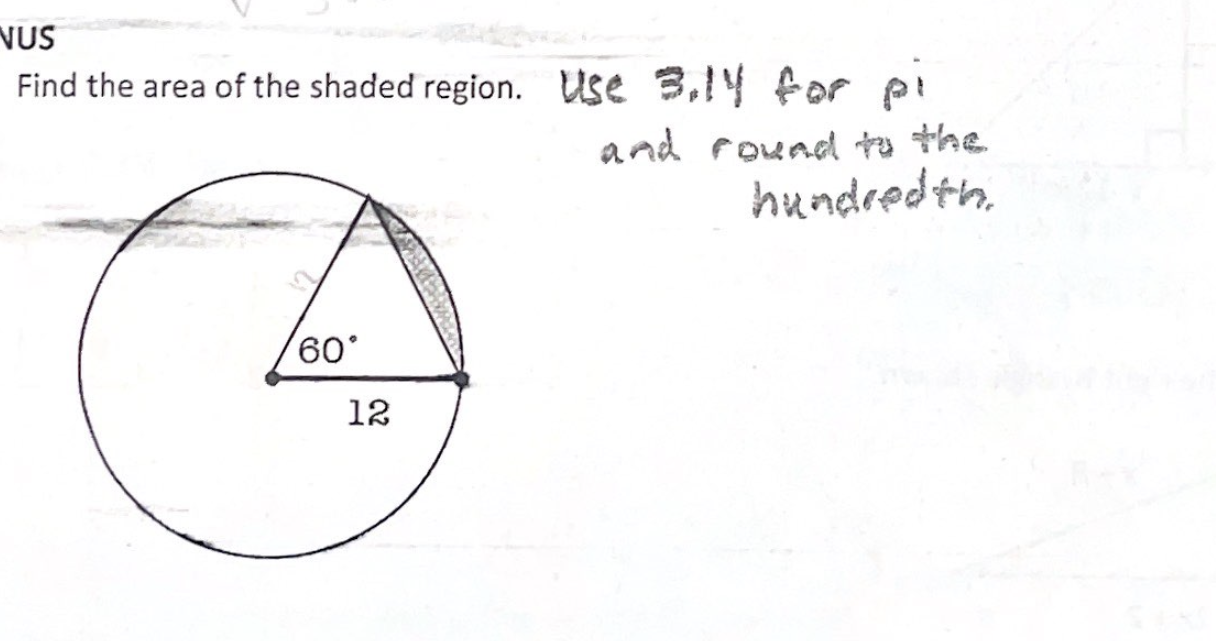 NUS
Find the area of the shaded region. Use 3.14 for pi
and round to the
hundredth.
12
60°
12